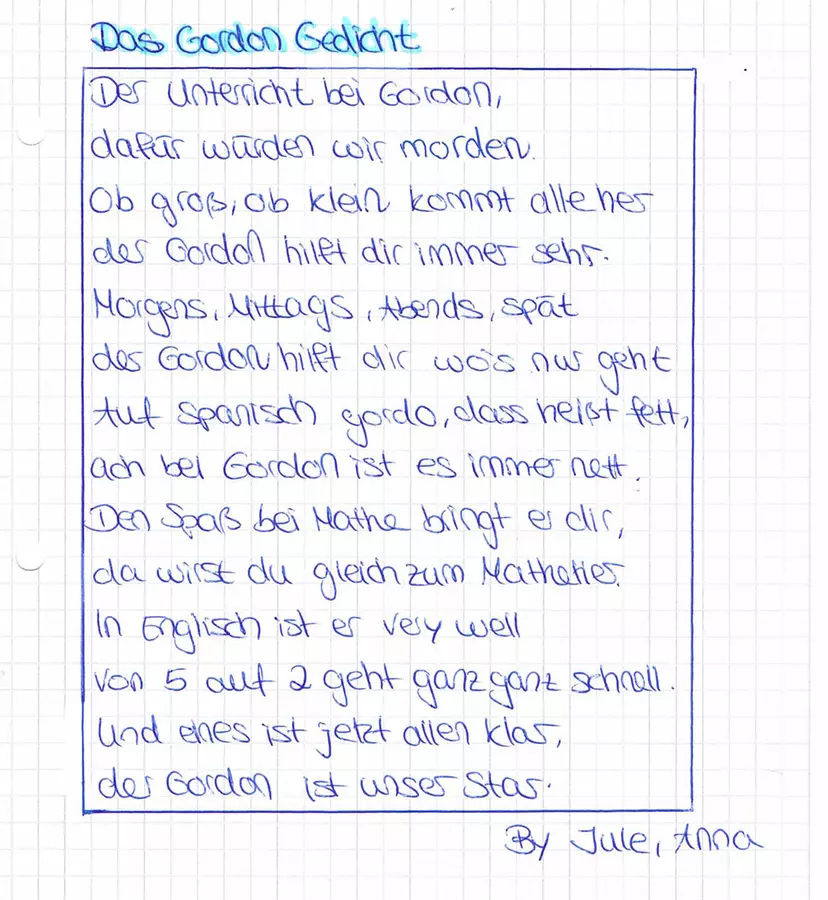 Das Gordon Gedicht
Der Unterricht bei Gordon,
dafür würden wir morden.
Ob groß, ob klein kommt alle her
der Gordon hilft dir immer sehr.
Morgens, Mittags, Abends, spät
der Gordon hilft dir wo's nur geht
Auf Spanisch gordo, dass heißt fett,
ach bei Gordon ist es immer nett.
Den Spaß bei Mathe bringt er dir,
da wirst du gleich zum Mathetier.
In Englisch ist er very well
von 5 auf 2 geht ganz ganz schnell.
Und eines ist jetzt allen klar,
der Gordon ist unser Star.
By Jule, Anna